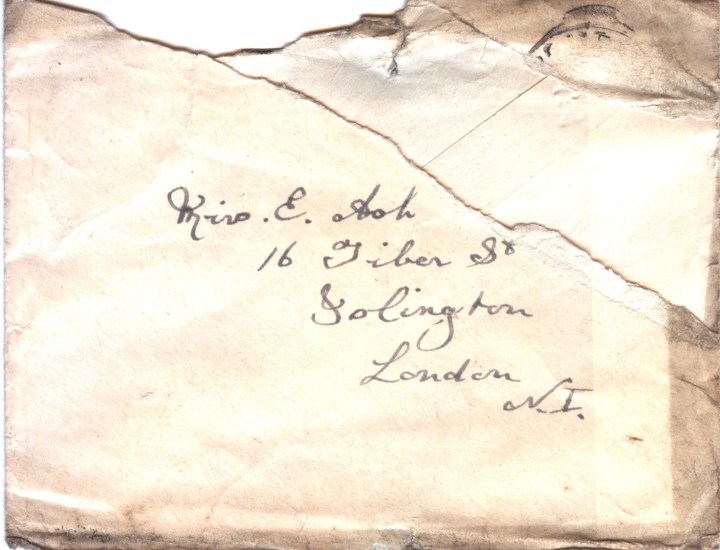 Mrs. E. Ash
16 Tiber St
Islington
London
N.I.